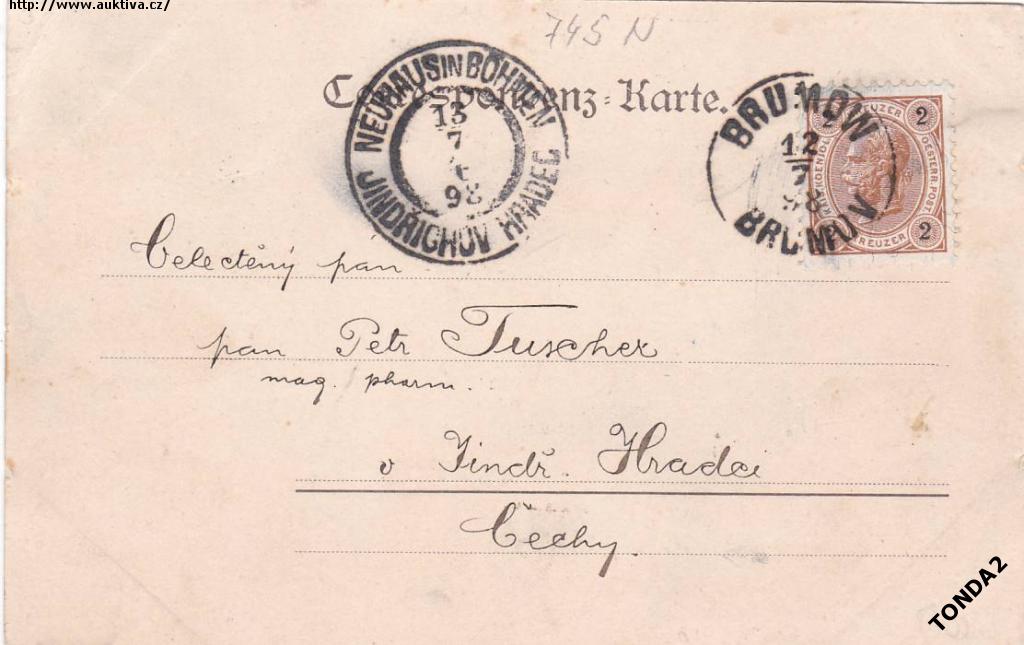 http://www.auktiva.cz/
745 N
Correspondenz-Karte.
NEUHAUS IN BÖHMEN
13
7
98
JINDŘICHŮV HRADEC
BRUMOW
12
7
98
BRUMOV
2 KREUZER 2
OESTERR. POST
2
KREUZER
Celectěný pán
pan Petr Tuscher
mag. pharm.
v Jindř. Hradci
Čechy.
TONDA2